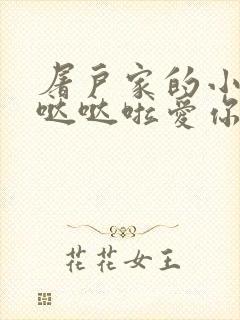 屠户家的小
哒哒啦爱你
花花女王